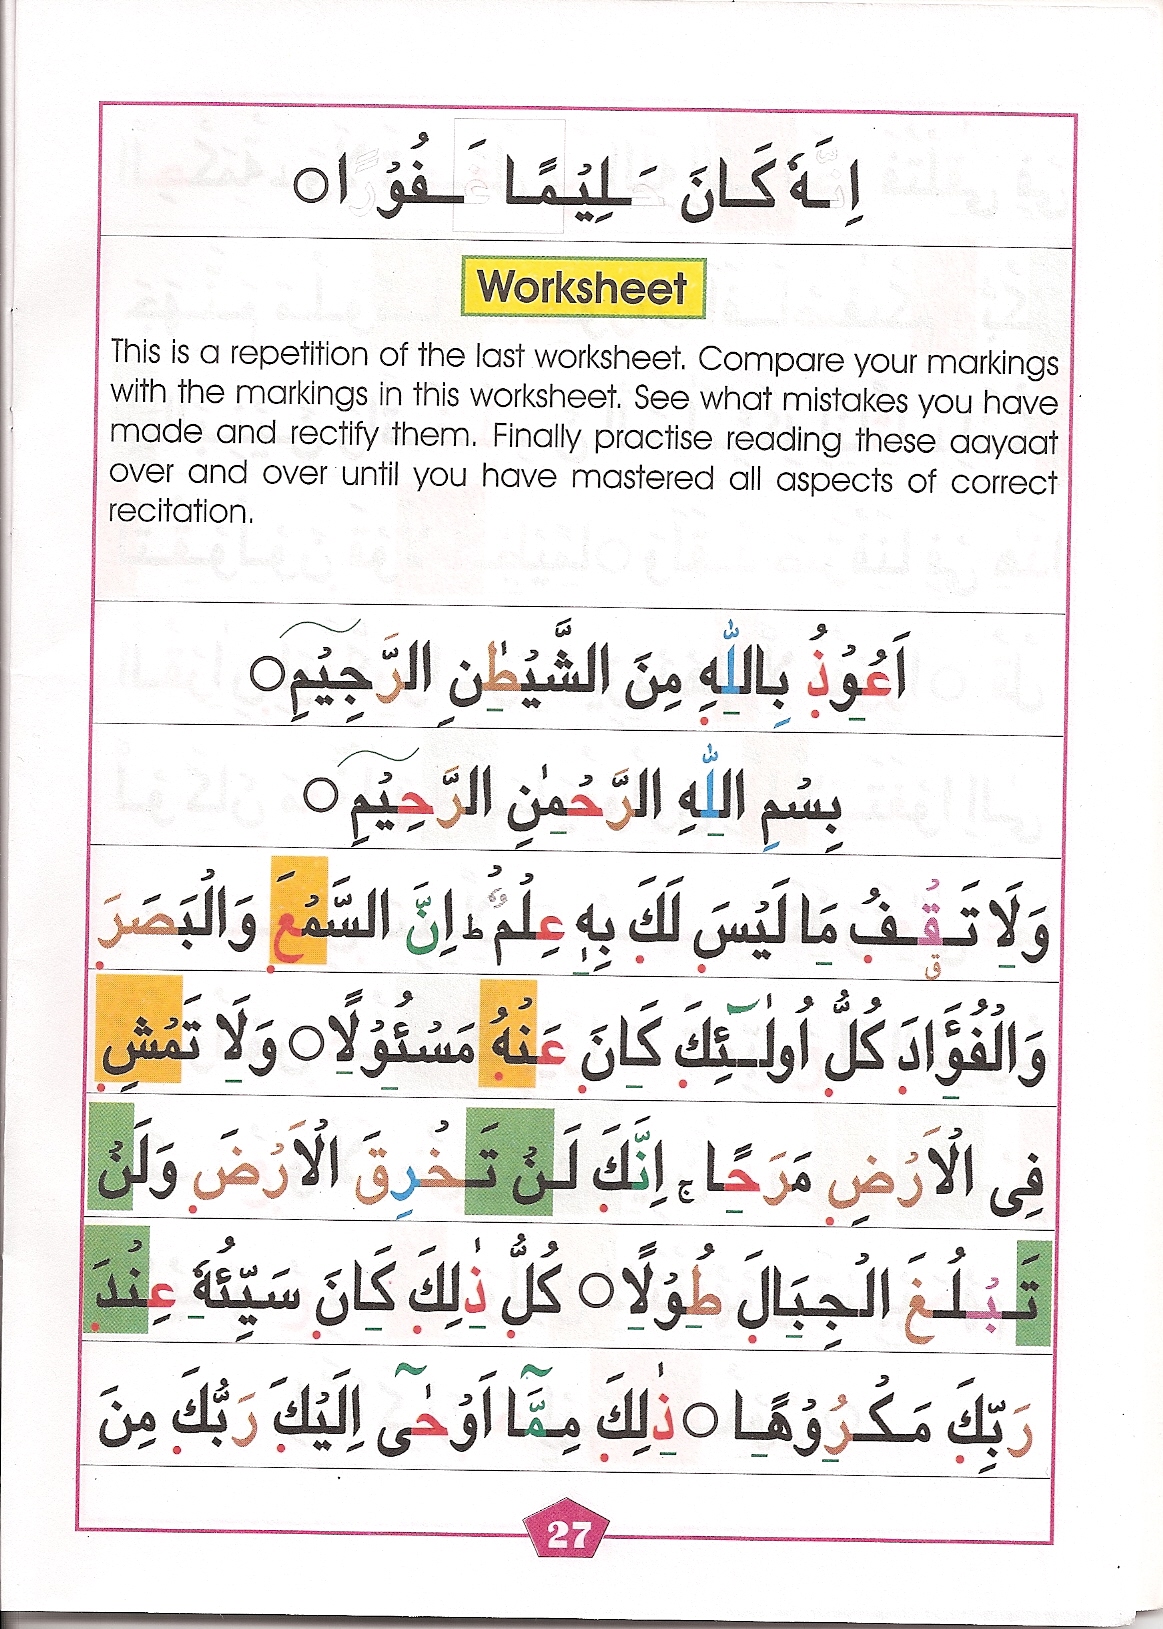 اِنَّهٗ كَانَ حَلِيْمًا غَفُوْرًا ○
Worksheet
This is a repetition of the last worksheet. Compare your markings
with the markings in this worksheet. See what mistakes you have
made and rectify them. Finally practise reading these aayaat
over and over until you have mastered all aspects of correct
recitation.
اَعُوْذُ بِاللّٰهِ مِنَ الشَّيْطٰنِ الرَّجِيْمِ ○
بِسْمِ اللّٰهِ الرَّحْمٰنِ الرَّحِيْمِ ○
وَلَا تَقْفُ مَا لَيْسَ لَكَ بِهٖ عِلْمٌ ط اِنَّ السَّمْعَ وَالْبَصَرَ
ق
وَالْفُؤَادَ كُلُّ اُولٰٓئِكَ كَانَ عَنْهُ مَسْئُوْلًا ○ وَلَا تَمْشِ
فِى الْاَرْضِ مَرَحًا ج اِنَّكَ لَنْ تَخْرِقَ الْاَرْضَ وَلَنْ
تَبْلُغَ الْجِبَالَ طُوْلًا ○ كُلُّ ذٰلِكَ كَانَ سَيِّئُهٗ عِنْدَ
رَبِّكَ مَكْرُوْهًا ○ ذٰلِكَ مِمَّآ اَوْحٰٓى اِلَيْكَ رَبُّكَ مِنَ
27